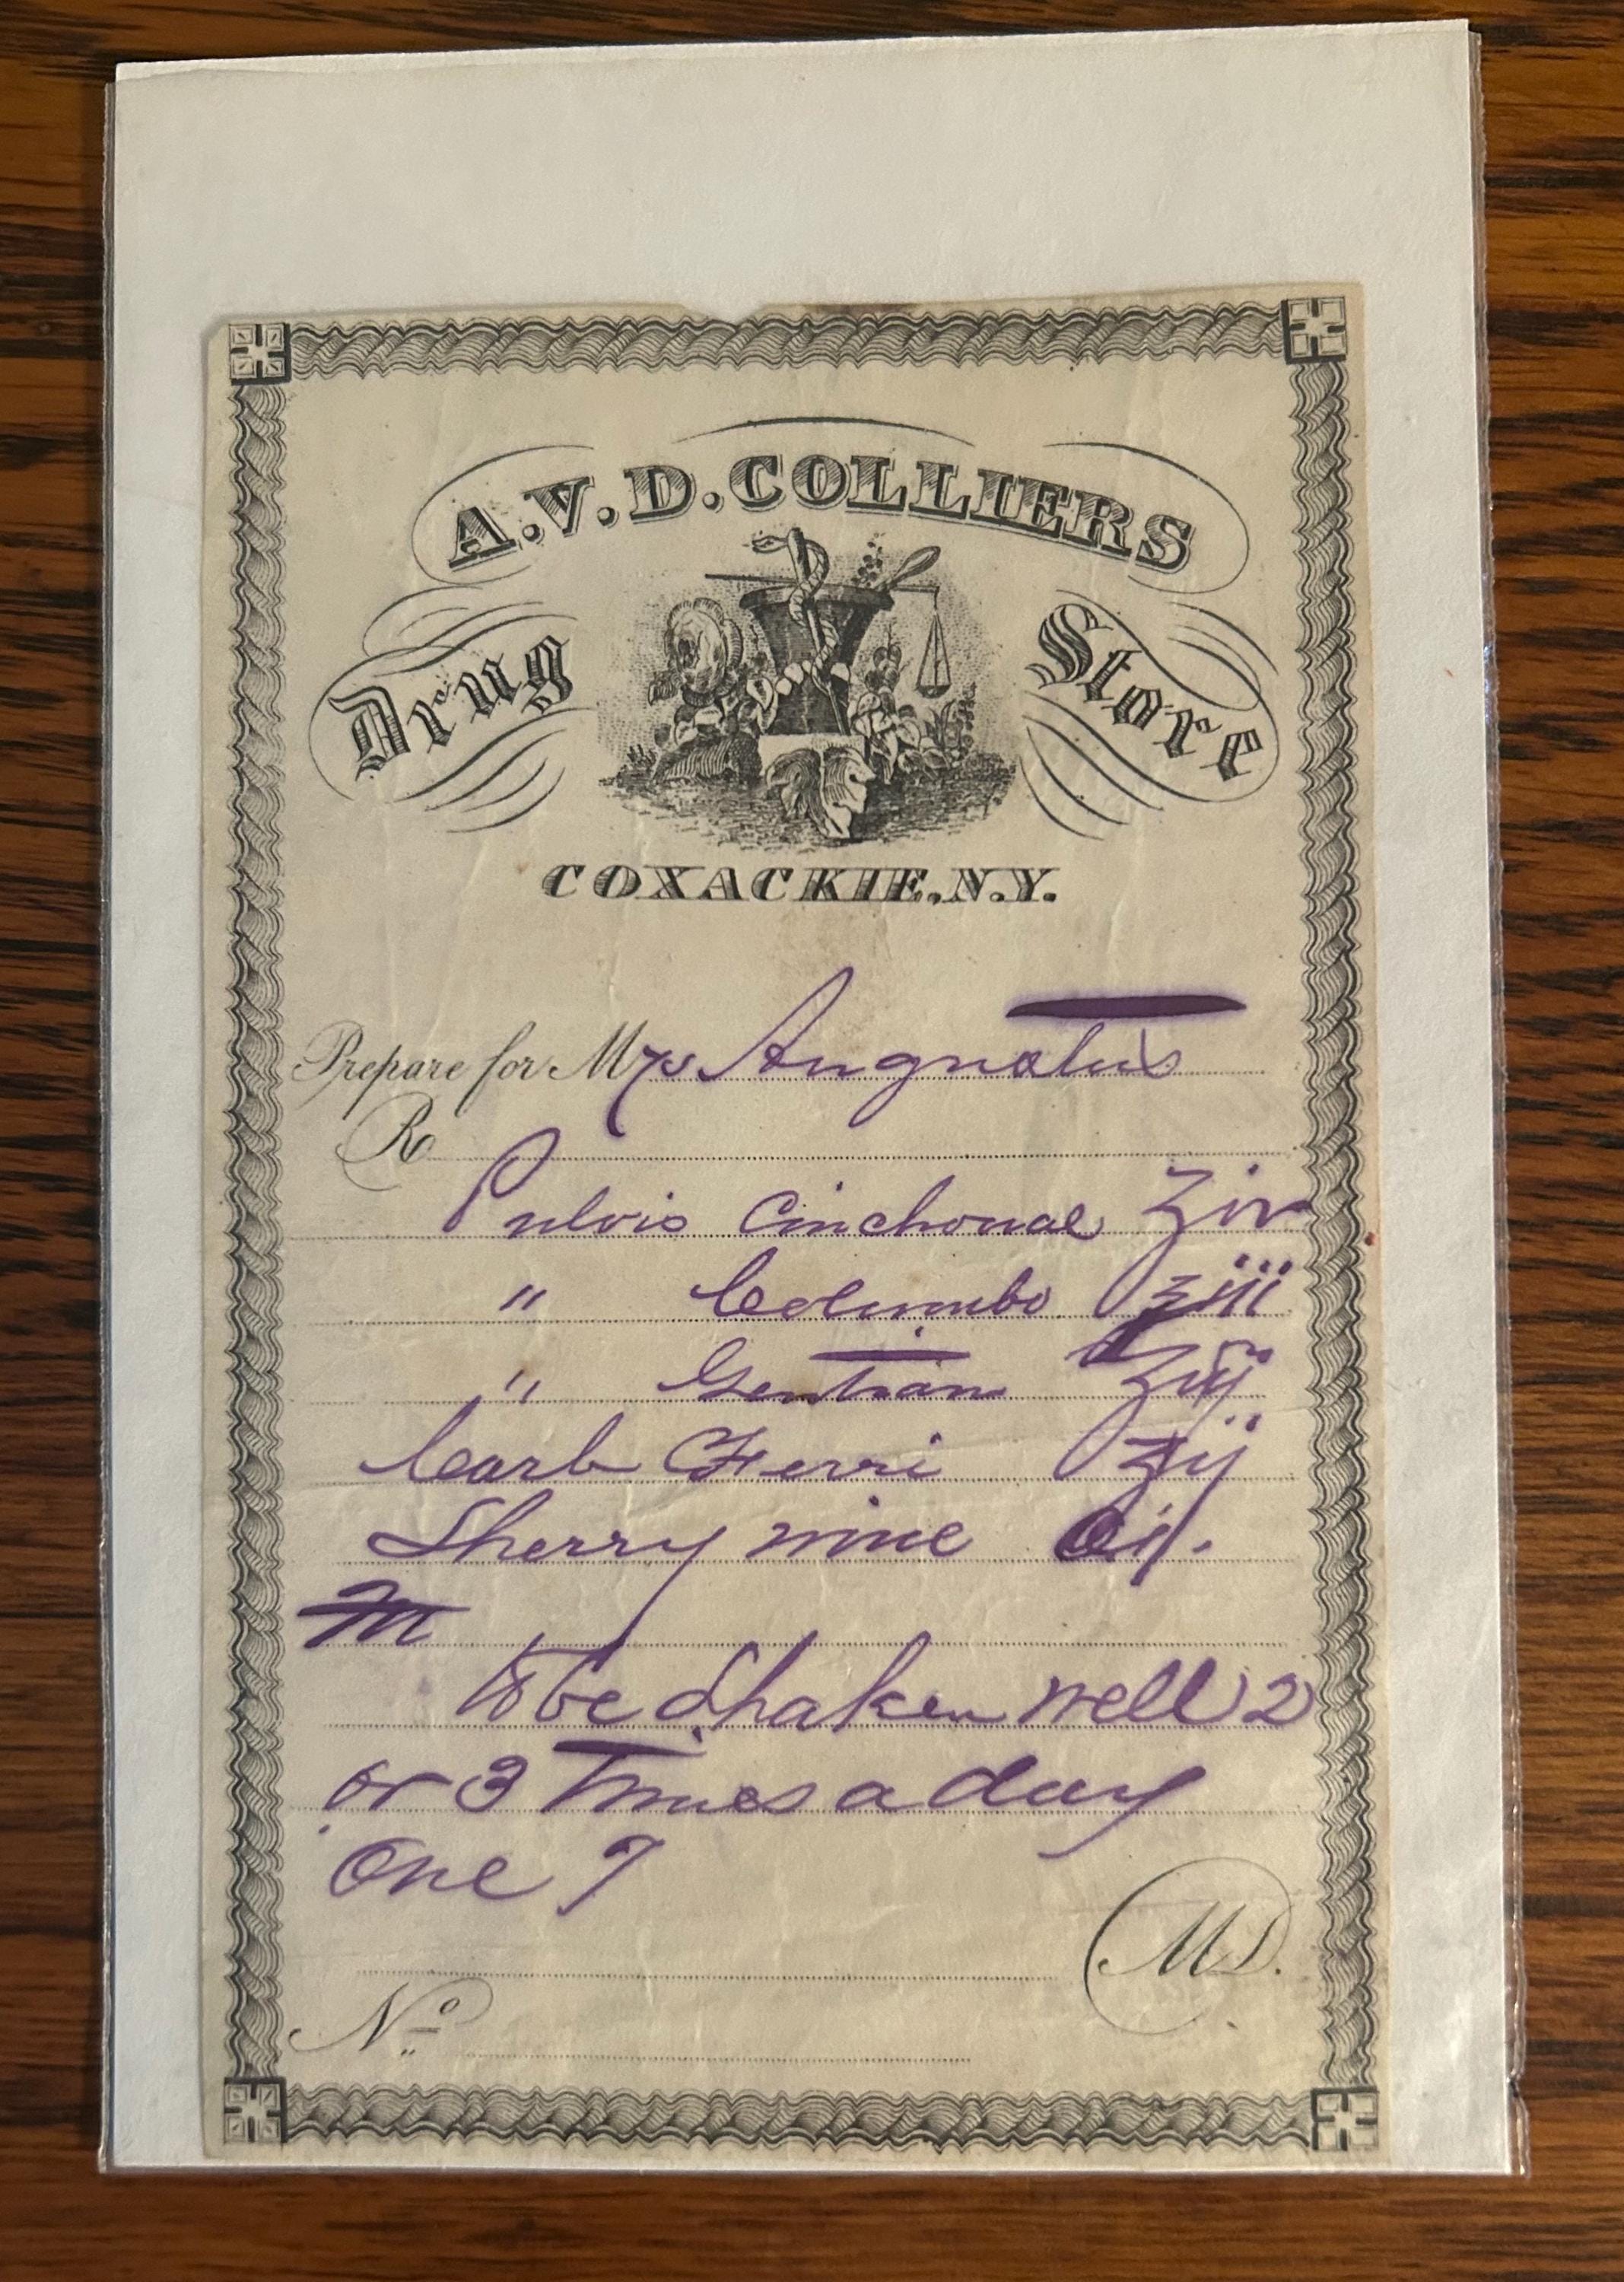 A.V.D. COLLIERS
Drug Store
COXACKIE, N.Y.
Prepare for Mrs
R
Pulvis Cinchonae ʒiv
" Columbo ʒiii
" Gentian ʒij
Carb Ferri ʒij
Sherry wine Oij.
M
To be Shaken well 2
or 3 Times a day
One
M.D.
No